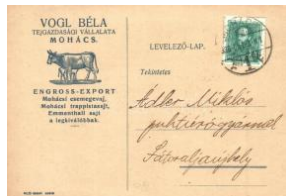 VOGL BÉLA
TEJGAZDASÁGI VÁLLALATA
MOHÁCS.
ENGROSS-EXPORT
Mohácsi csemegevaj,
Mohácsi trappistasajt,
Emmenthali sajt
a legkiválóbbak.
LEVELEZŐ-LAP.
Tekintetes
Adler Miklós
Sátoraljaujhely